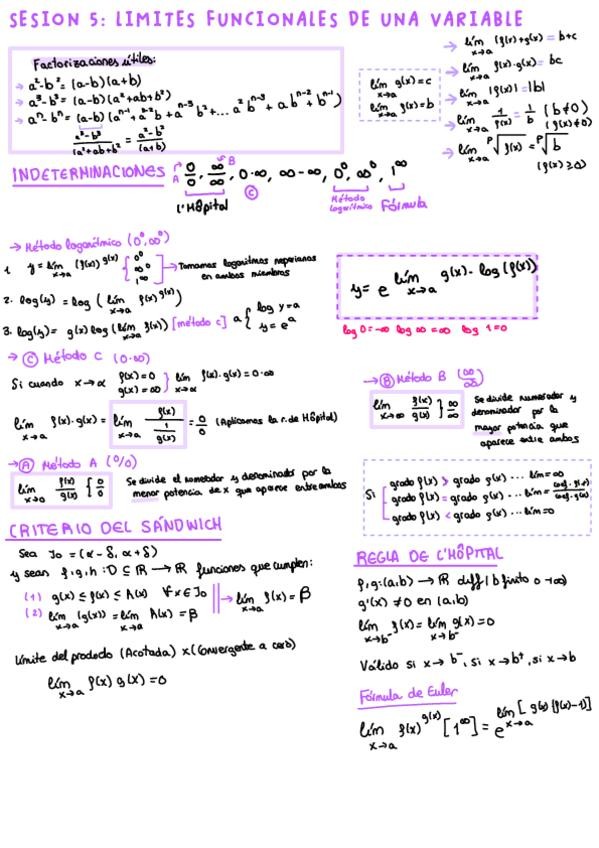 SESION 5: LIMITES FUNCIONALES DE UNA VARIABLE
Factorizaciones útiles:
→ a²-b² = (a-b)(a+b)
→ a³-b³ = (a-b)(a²+ab+b²)
→ aⁿ-bⁿ = (a-b)(aⁿ⁻¹+aⁿ⁻²b+aⁿ⁻³b²+...a²bⁿ⁻³+abⁿ⁻²+bⁿ⁻¹)
(a³-b³)/(a²+ab+b²) = (a²-b²)/(a+b)
lím x→a g(x)=c
lím x→a f(x)=b
→ lím x→a (f(x)+g(x)) = b+c
→ lím x→a f(x)·g(x) = bc
→ lím x→a |f(x)| = |b|
→ lím x→a 1/f(x) = 1/b (b≠0) (f(x)≠0)
→ lím x→a ᵖ√f(x) = ᵖ√b (f(x)≥0)
INDETERMINACIONES A 0/0, ∞/∞ B, 0·∞, ∞-∞, 0⁰, ∞⁰, 1^∞
L'Hôpital C Método logarítmico Fórmula
→ Método logarítmico (0⁰,∞⁰)
1. y = lím x→a (f(x))^g(x) { 0⁰ ∞⁰ 1^∞ → Tomamos logaritmos neperianos en ambos miembros
2. log(y) = log (lím x→a f(x)^g(x))
3. log(y) = g(x) log (lím x→a f(x)) [método c] a { log y = a y = eᵃ
y = e^lím x→a g(x)·log(f(x))
log 0=-∞ log ∞=∞ log 1=0
→ C Método C (0·∞)
Si cuando x→α f(x)=0 g(x)=∞ } lím x→α f(x)·g(x) = 0·∞
lím x→a f(x)·g(x) = lím x→a f(x)/(1/g(x)) = 0/0 (Aplicamos la r. de Hôpital)
→ B Método B (∞/∞)
lím x→∞ f(x)/g(x) } ∞/∞
Se divide numerador y
denominador por la
mayor potencia que
aparece entre ambos
→ A Método A (0/0)
lím x→0 f(x)/g(x) { 0/0
Se divide el numerador y denominador por la
menor potencia de x que aparece entre ambos
Si
grado f(x) > grado g(x) ... lím=∞
grado f(x) = grado g(x) ... lím = coef. f(x)/coef. g(x)
grado f(x) < grado g(x) ... lím=0
CRITERIO DEL SÁNDWICH
Sea J₀ = (α-δ, α+δ)
y sean f,g,h: D ⊆ ℝ → ℝ funciones que cumplen:
(1) g(x) ≤ f(x) ≤ h(x) ∀x∈J₀
(2) lím x→a (g(x)) = lím x→a h(x) = β
→ lím x→a f(x) = β
Límite del producto (Acotada) x (Convergente a cero)
lím x→a f(x) g(x) = 0
REGLA DE L'HÔPITAL
f,g: (a,b) → ℝ diff (b finito o +∞)
g'(x) ≠ 0 en (a,b)
lím x→b⁻ f(x) = lím x→b⁻ g(x) = 0
Válido si x→b⁻, si x→b⁺, si x→b
Fórmula de Euler
lím x→a f(x)^g(x) [1^∞] = e^lím x→a [g(x)(f(x)-1)]